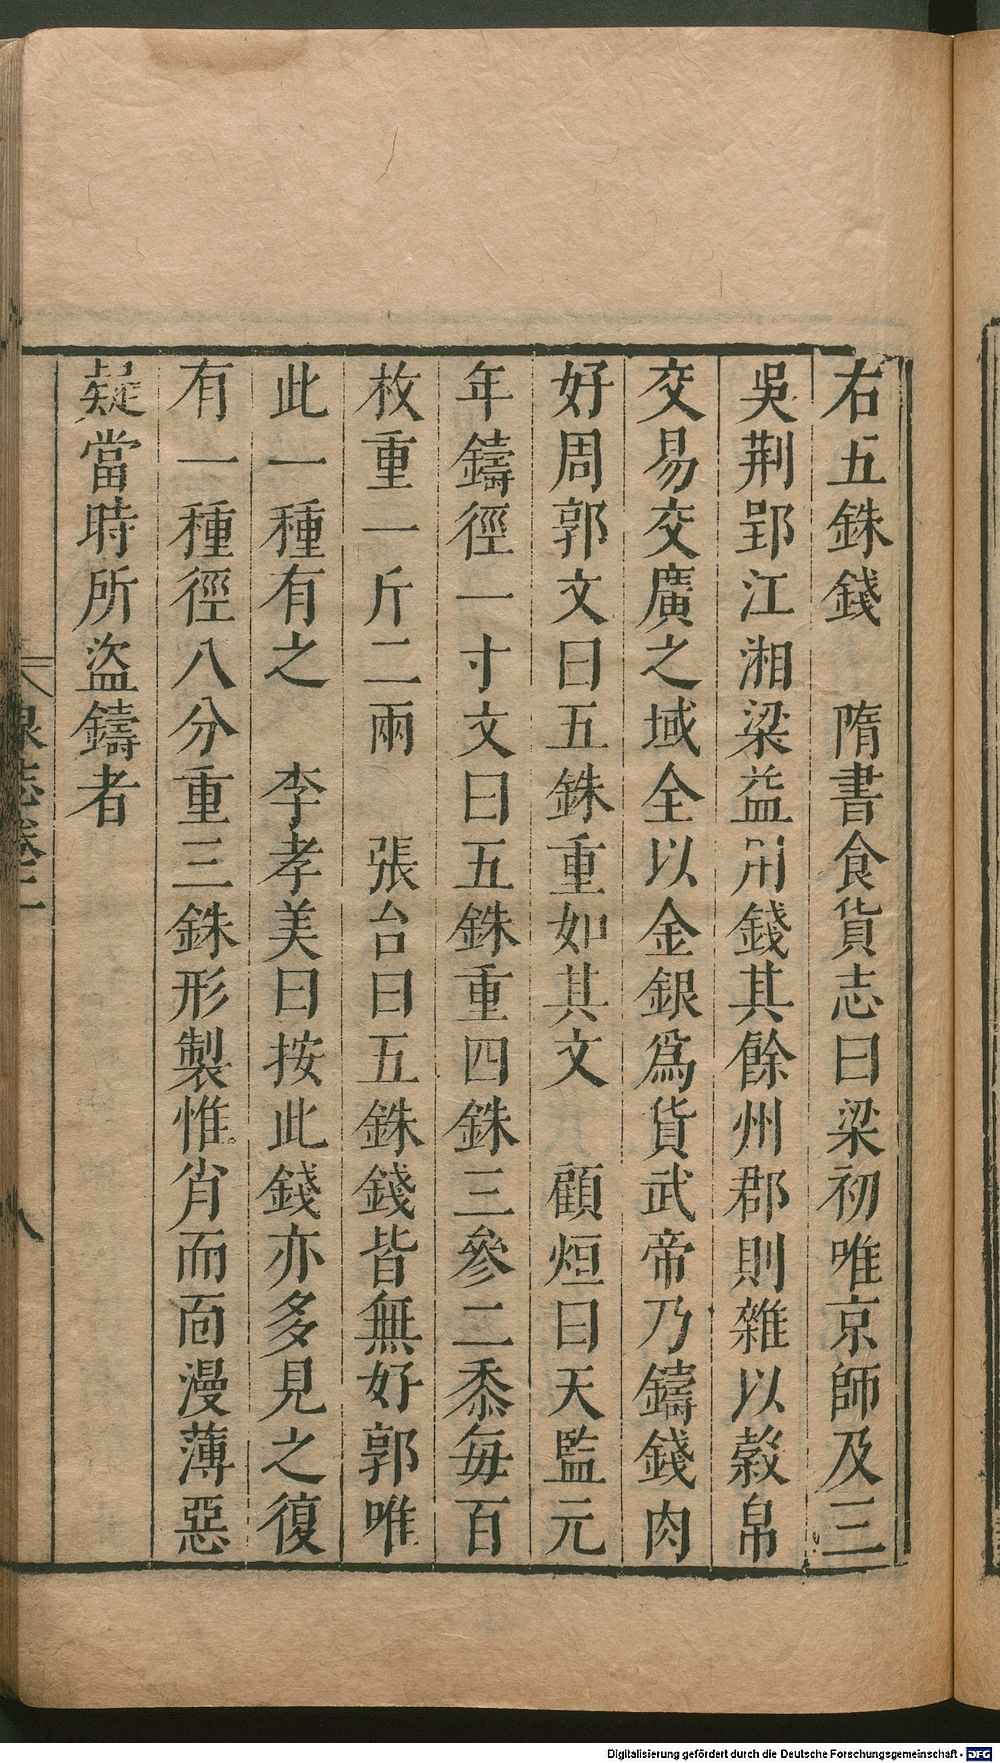 右五銖錢　隋書食貨志曰梁初唯京師及三
吳荆郢江湘梁益用錢其餘州郡則雜以穀帛
交易交廣之域全以金銀爲貨武帝乃鑄錢肉
好周郭文曰五銖重如其文　顧烜曰天監元
年鑄徑一寸文曰五銖重四銖三參二黍每百
枚重一斤二兩　張台曰五銖錢皆無好郭唯
此一種有之　李孝美曰按此錢亦多見之復
有一種徑八分重三銖形製惟肖而面漫薄惡
疑當時所盜鑄者
泉志卷二
八
Digitalisierung gefördert durch die Deutsche Forschungsgemeinschaft - DFG